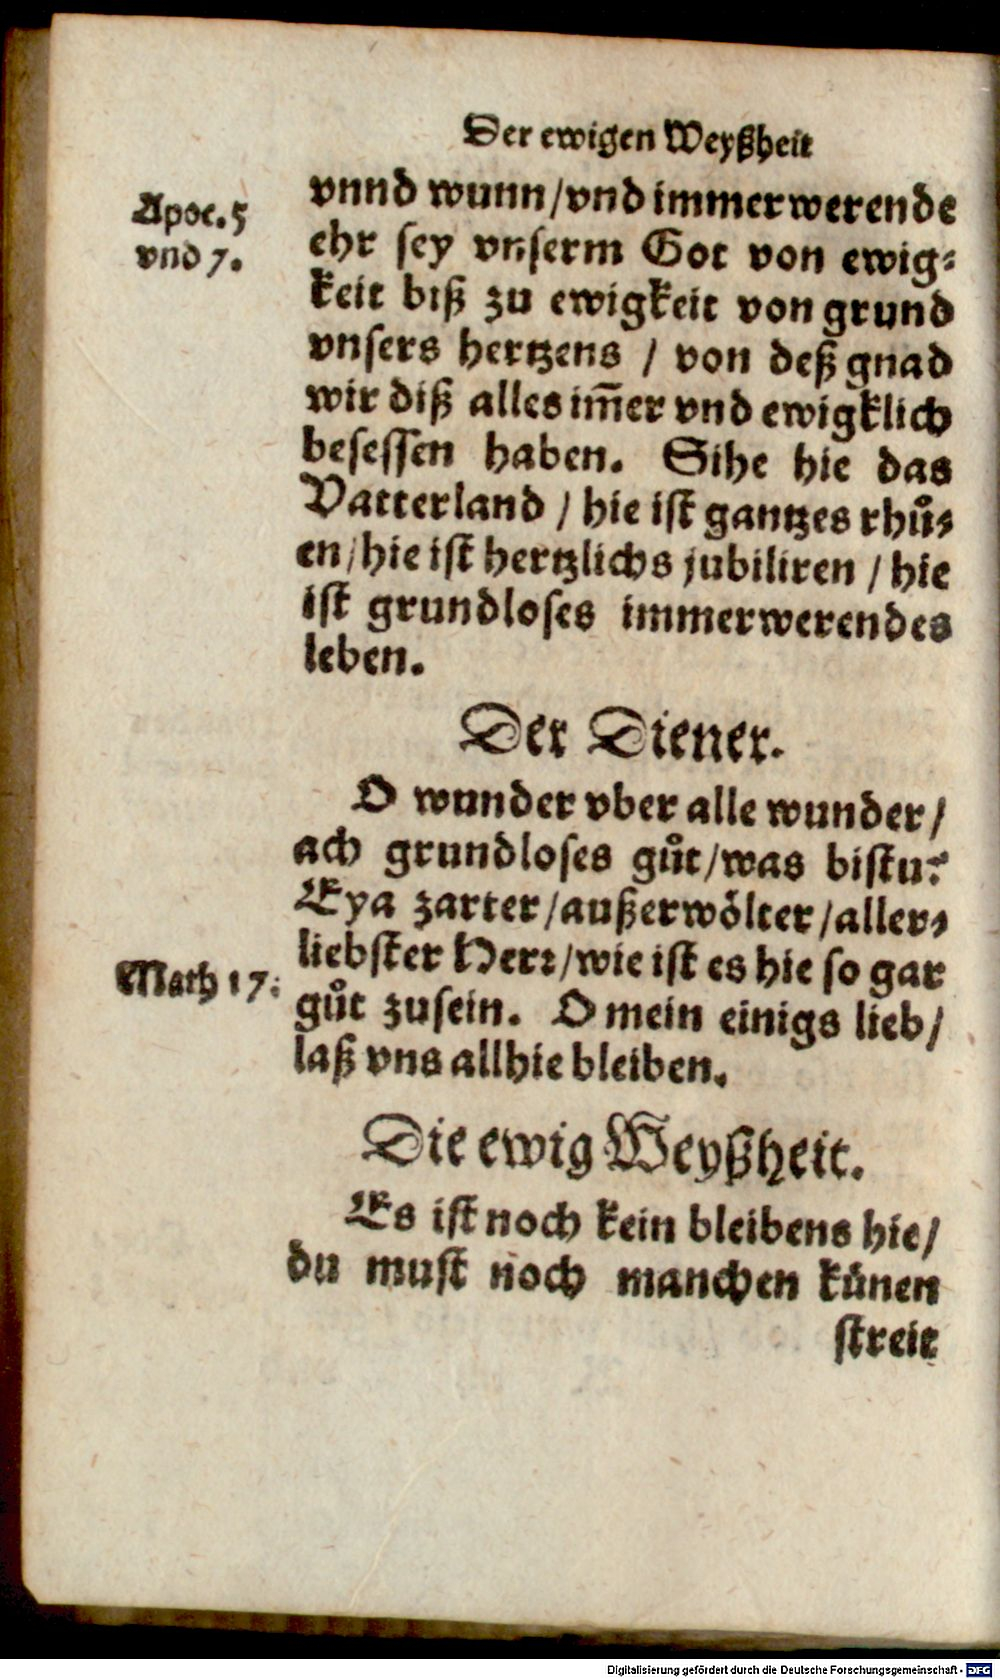 Der ewigen Weyßheit
Apoc. 5
vnd 7.
vnnd wunn/vnd immerwerende
ehr sey vnserm Got von ewig⸗
keit biß zu ewigkeit von grund
vnsers hertzens / von deß gnad
wir diß alles im̄er vnd ewigklich
besessen haben. Sihe hie das
Vatterland / hie ist gantzes rhuͤ⸗
en/hie ist hertzlichs jubiliren / hie
ist grundloses immerwerendes
leben.
Der Diener.
O wunder vber alle wunder/
ach grundloses guͦt/was bistu?
Eya zarter/außerwoͤlter/aller⸗
Math 17.
liebster Herꝛ/wie ist es hie so gar
guͦt zusein. O mein einigs lieb/
laß vns allhie bleiben.
Die ewig Weyßheit.
Es ist noch kein bleibens hie/
du must noch manchen kuͤnen
streit
Digitalisierung gefördert durch die Deutsche Forschungsgemeinschaft - DFG